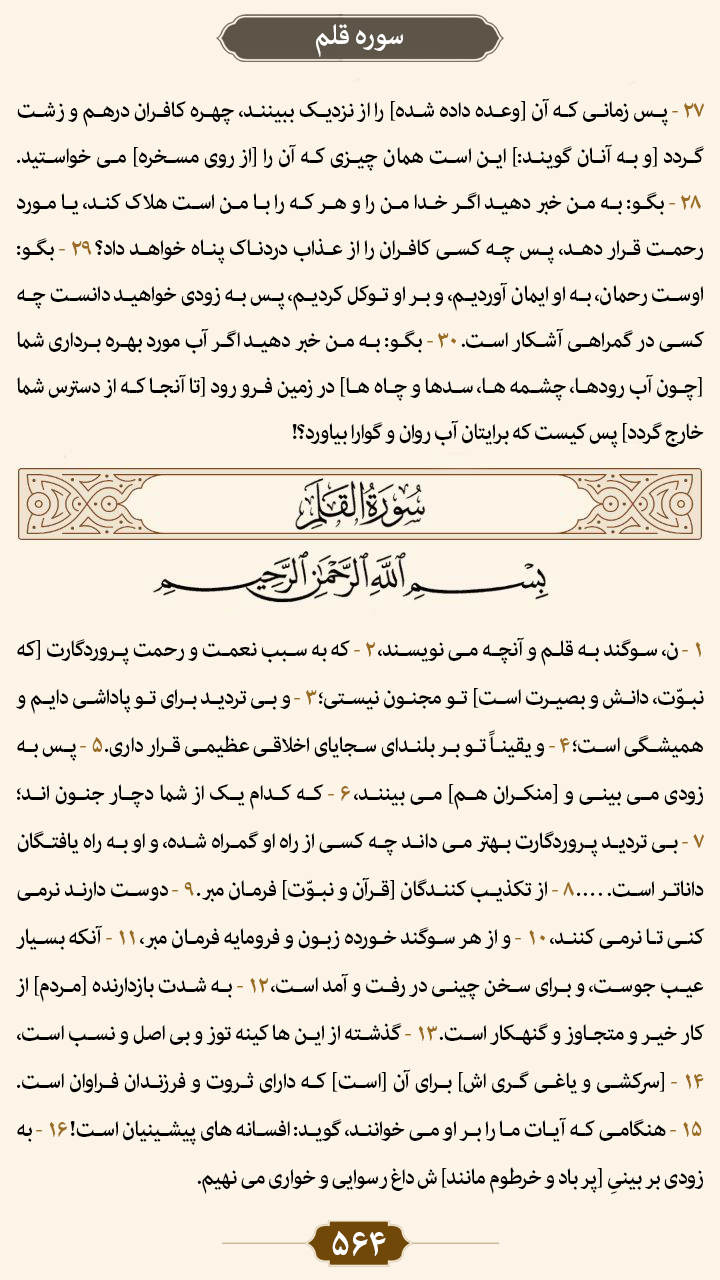 سوره قلم
۲۷ - پس زمانی که آن [وعده داده شده] را از نزدیک ببینند، چهره کافران درهم و زشت
گردد [و به آنان گویند:] این است همان چیزی که آن را [از روی مسخره] می خواستید.
۲۸ - بگو: به من خبر دهید اگر خدا من را و هر که را با من است هلاک کند، یا مورد
رحمت قرار دهد، پس چه کسی کافران را از عذاب دردناک پناه خواهد داد؟ ۲۹ - بگو:
اوست رحمان، به او ایمان آوردیم، و بر او توکل کردیم، پس به زودی خواهید دانست چه
کسی در گمراهی آشکار است. ۳۰ - بگو: به من خبر دهید اگر آب مورد بهره برداری شما
[چون آب رودها، چشمه ها، سدها و چاه ها] در زمین فرو رود [تا آنجا که از دسترس شما
خارج گردد] پس کیست که برایتان آب روان و گوارا بیاورد؟!
سُورَةُ القَلَمِ
بِسْمِ اللَّهِ الرَّحْمَٰنِ الرَّحِيمِ
۱ - ن، سوگند به قلم و آنچه می نویسند، ۲ - که به سبب نعمت و رحمت پروردگارت [که
نبوّت، دانش و بصیرت است] تو مجنون نیستی؛ ۳ - و بی تردید برای تو پاداشی دایم و
همیشگی است؛ ۴ - و یقیناً تو بر بلندای سجایای اخلاقی عظیمی قرار داری. ۵ - پس به
زودی می بینی و [منکران هم] می بینند، ۶ - که کدام یک از شما دچار جنون اند؛
۷ - بی تردید پروردگارت بهتر می داند چه کسی از راه او گمراه شده، و او به راه یافتگان
داناتر است. .... ۸ - از تکذیب کنندگان [قرآن و نبوّت] فرمان مبر. ۹ - دوست دارند نرمی
کنی تا نرمی کنند، ۱۰ - و از هر سوگند خورده زبون و فرومایه فرمان مبر، ۱۱ - آنکه بسیار
عیب جوست، و برای سخن چینی در رفت و آمد است، ۱۲ - به شدت بازدارنده [مردم] از
کار خیر و متجاوز و گنهکار است. ۱۳ - گذشته از این ها کینه توز و بی اصل و نسب است،
۱۴ - [سرکشی و یاغی گری اش] برای آن [است] که دارای ثروت و فرزندان فراوان است.
۱۵ - هنگامی که آیات ما را بر او می خوانند، گوید: افسانه های پیشینیان است! ۱۶ - به
زودی بر بینیِ [پر باد و خرطوم مانند] ش داغ رسوایی و خواری می نهیم.
۵۶۴